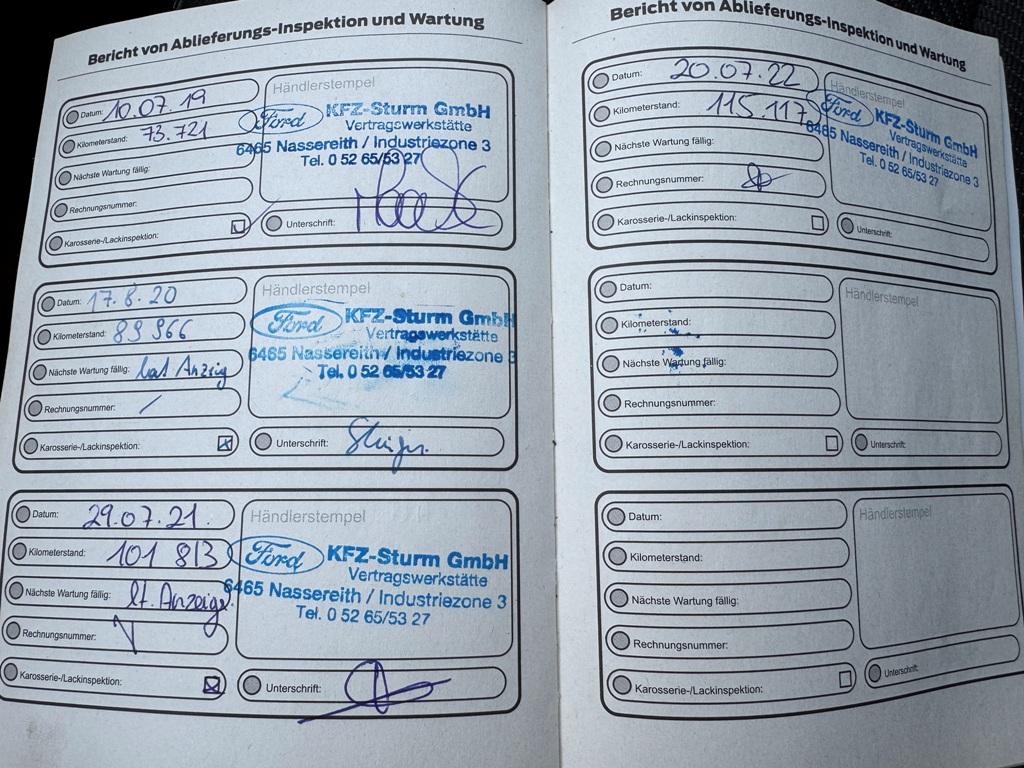 Bericht von Ablieferungs-Inspektion und Wartung
Datum: 10.07.19
Kilometerstand: 73.721
Nächste Wartung fällig:
Rechnungsnummer:
Karosserie-/Lackinspektion:
Händlerstempel
Ford KFZ-Sturm GmbH
Vertragswerkstätte
6465 Nassereith / Industriezone 3
Tel. 0 52 65/53 27
Unterschrift:
Datum: 17.8.20
Kilometerstand: 89966
Nächste Wartung fällig: Anzeig
Rechnungsnummer: /
Karosserie-/Lackinspektion:
Händlerstempel
Ford KFZ-Sturm GmbH
Vertragswerkstätte
6465 Nassereith / Industriezone 3
Tel. 0 52 65/53 27
Unterschrift:
Datum: 29.07.21.
Kilometerstand: 101 813
Nächste Wartung fällig: lt. Anzeige
Rechnungsnummer:
Karosserie-/Lackinspektion:
Händlerstempel
Ford KFZ-Sturm GmbH
Vertragswerkstätte
6465 Nassereith / Industriezone 3
Tel. 0 52 65/53 27
Unterschrift:
Bericht von Ablieferungs-Inspektion und Wartung
Datum: 20.07.22
Kilometerstand: 115.117
Nächste Wartung fällig:
Rechnungsnummer:
Karosserie-/Lackinspektion:
Händlerstempel
Ford KFZ-Sturm GmbH
Vertragswerkstätte
6465 Nassereith / Industriezone 3
Tel. 0 52 65/53 27
Unterschrift:
Datum:
Kilometerstand:
Nächste Wartung fällig:
Rechnungsnummer:
Karosserie-/Lackinspektion:
Händlerstempel
Unterschrift:
Datum:
Kilometerstand:
Nächste Wartung fällig:
Rechnungsnummer:
Karosserie-/Lackinspektion:
Händlerstempel
Unterschrift: